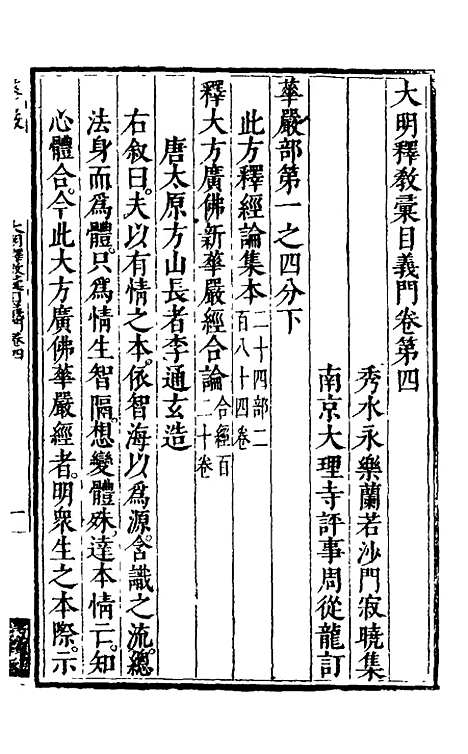 大明釋敎彙目義門卷第四
秀水永樂蘭若沙門寂曉集
南京大理寺評事周從龍訂
華嚴部第一之四分下
此方釋經論集本二十四部二百八十四卷
釋大方廣佛新華嚴經合論合經百二十卷
唐太原方山長者李通玄造
右敘曰。夫以有情之本。依智海以爲源。含識之流。總
法身而爲體。只爲情生智隔。想變體殊。達本情亡。知
心體合。今此大方廣佛華嚴經者。明衆生之本際。示
大明釋敎彙目義門卷四
一